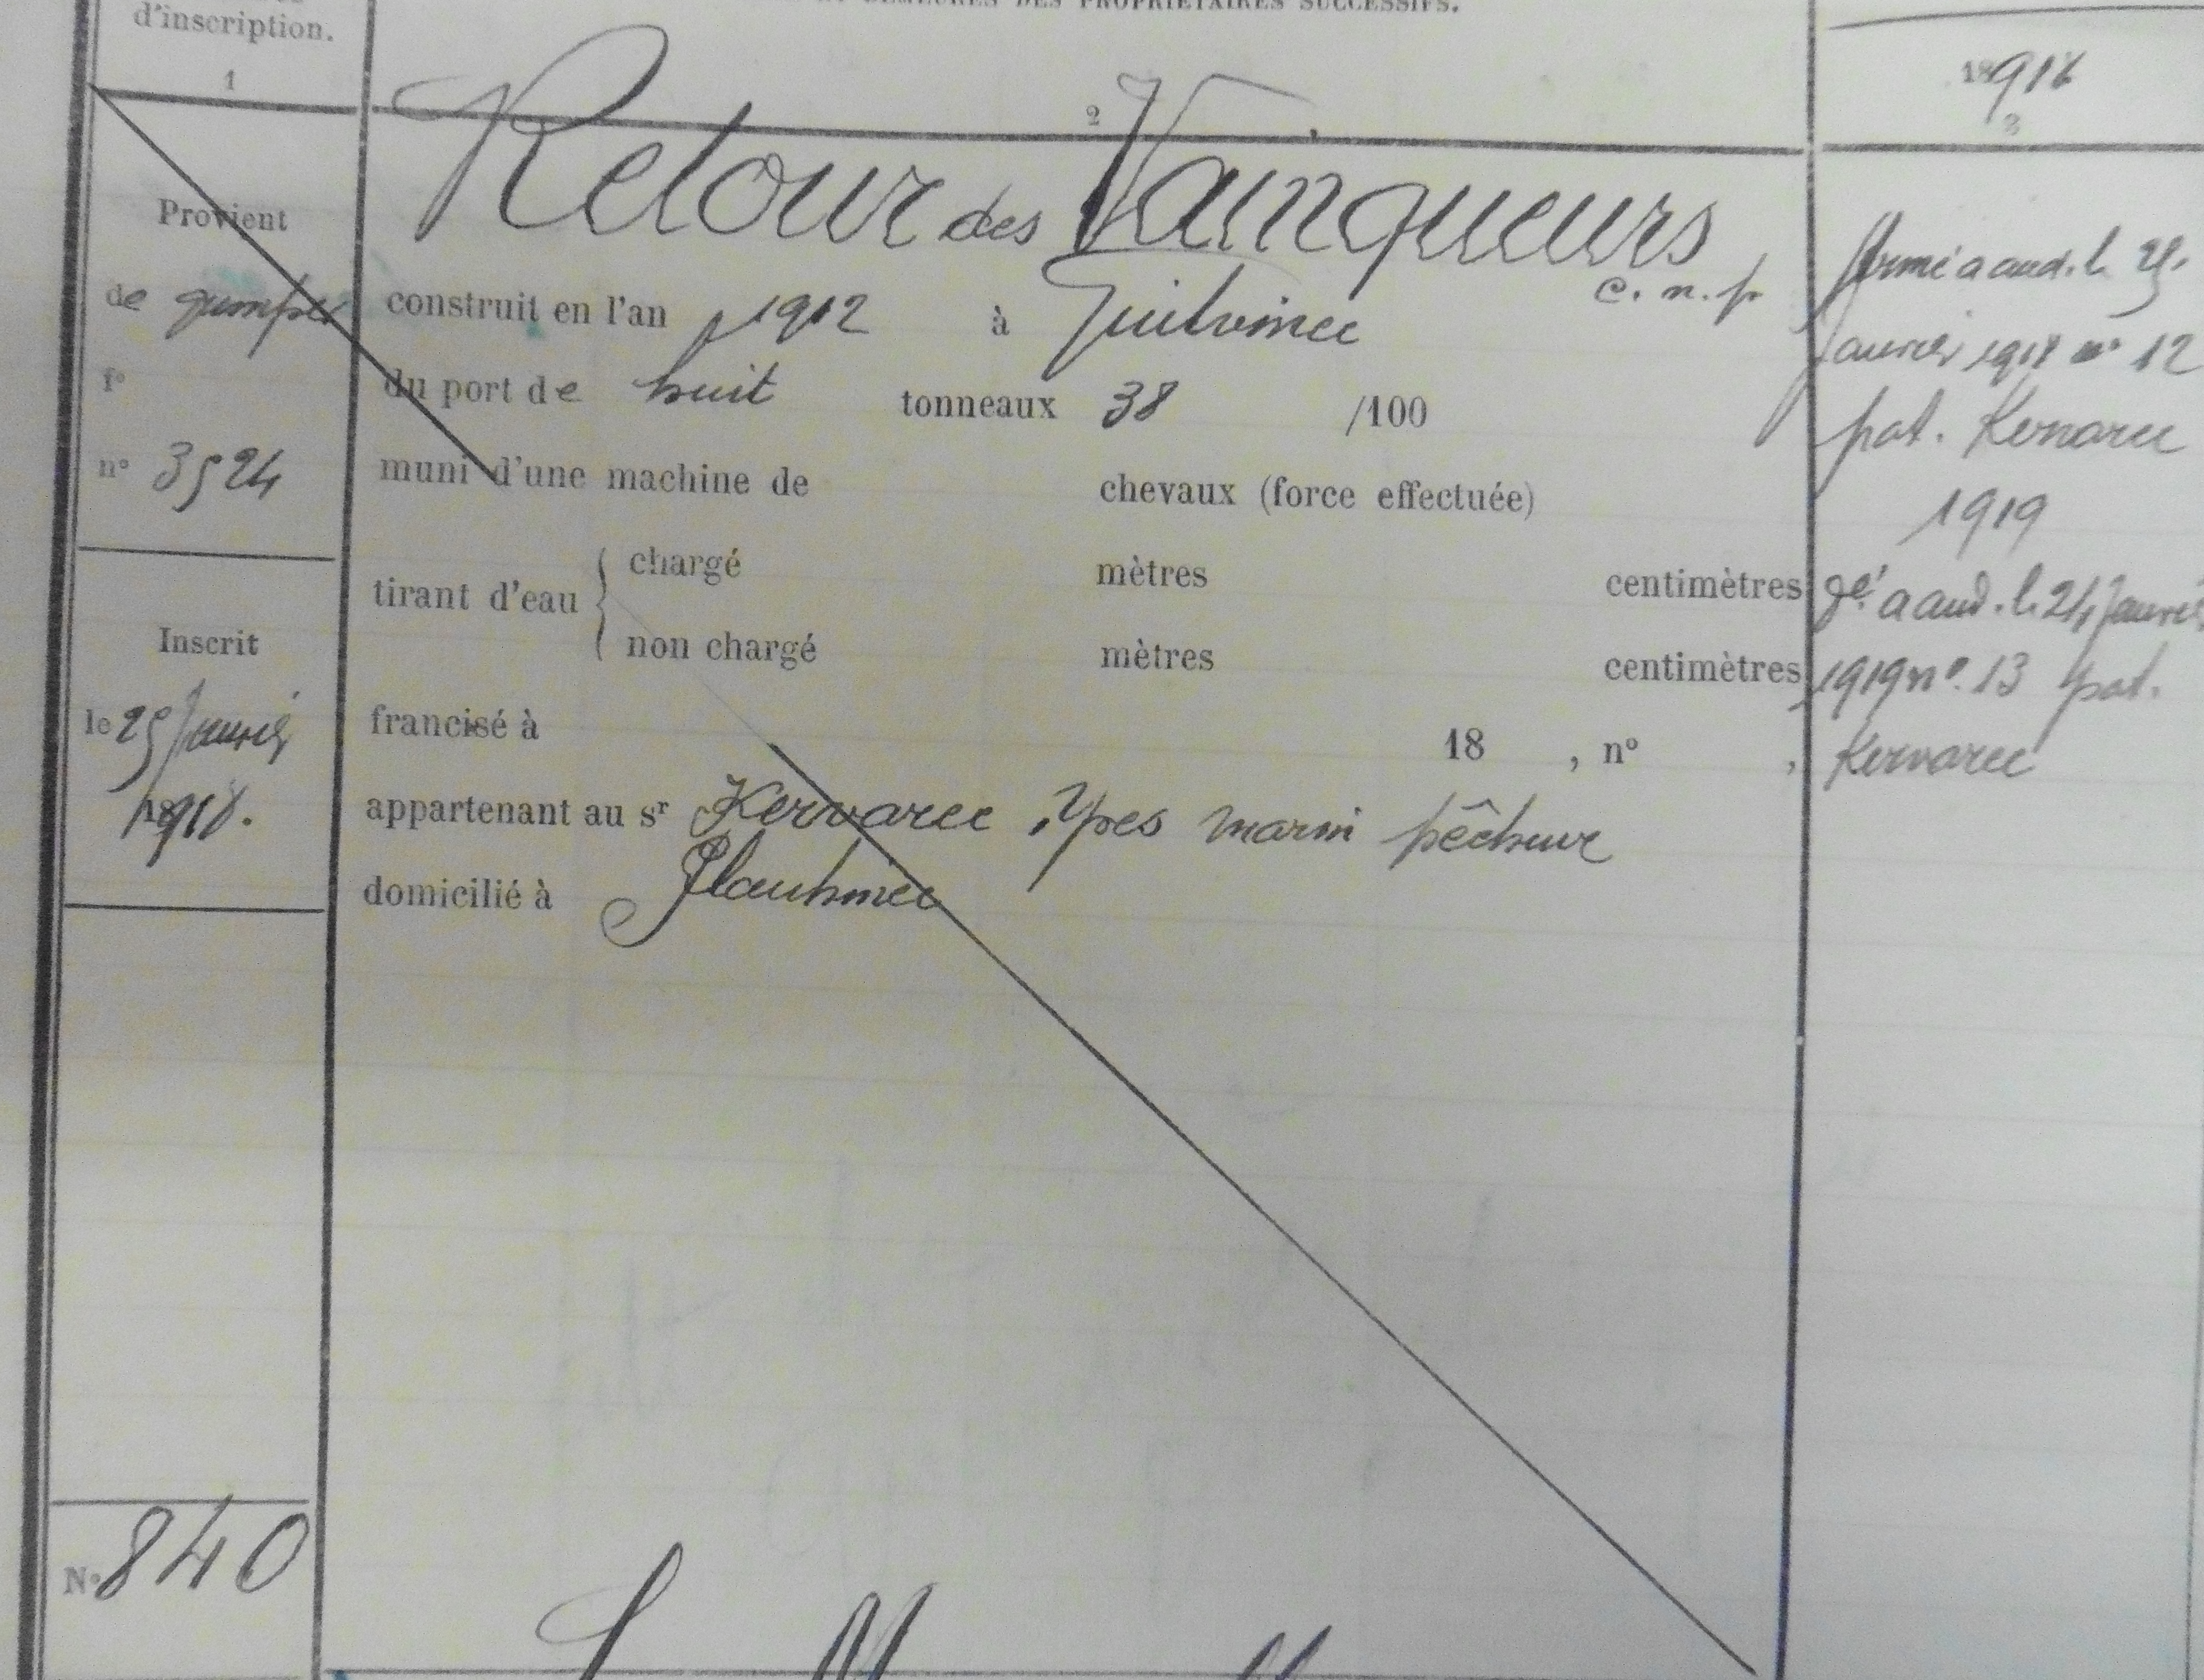 d'inscription.
DES PROPRIÉTAIRES SUCCESSIFS.
1
2
18918
3
Retour des Vainqueurs
c. n. p
Provient
de quimper
f°
n° 3524
construit en l'an 1912 à Guilvinec
du port de huit tonneaux 38 /100
muni d'une machine de chevaux (force effectuée)
tirant d'eau { chargé mètres centimètres
non chargé mètres centimètres
francisé à 18 , n° ,
appartenant au sr Kervarec Yves marin pêcheur
domicilié à
Inscrit
le 25 Janvier
1918.
Armé a aud. le 25
Janvier 1918 n° 12
pat. Kervarec
1919
Ré a aud. le 24 Janvier
1919 n° 13 pat.
Kervarec
N° 840